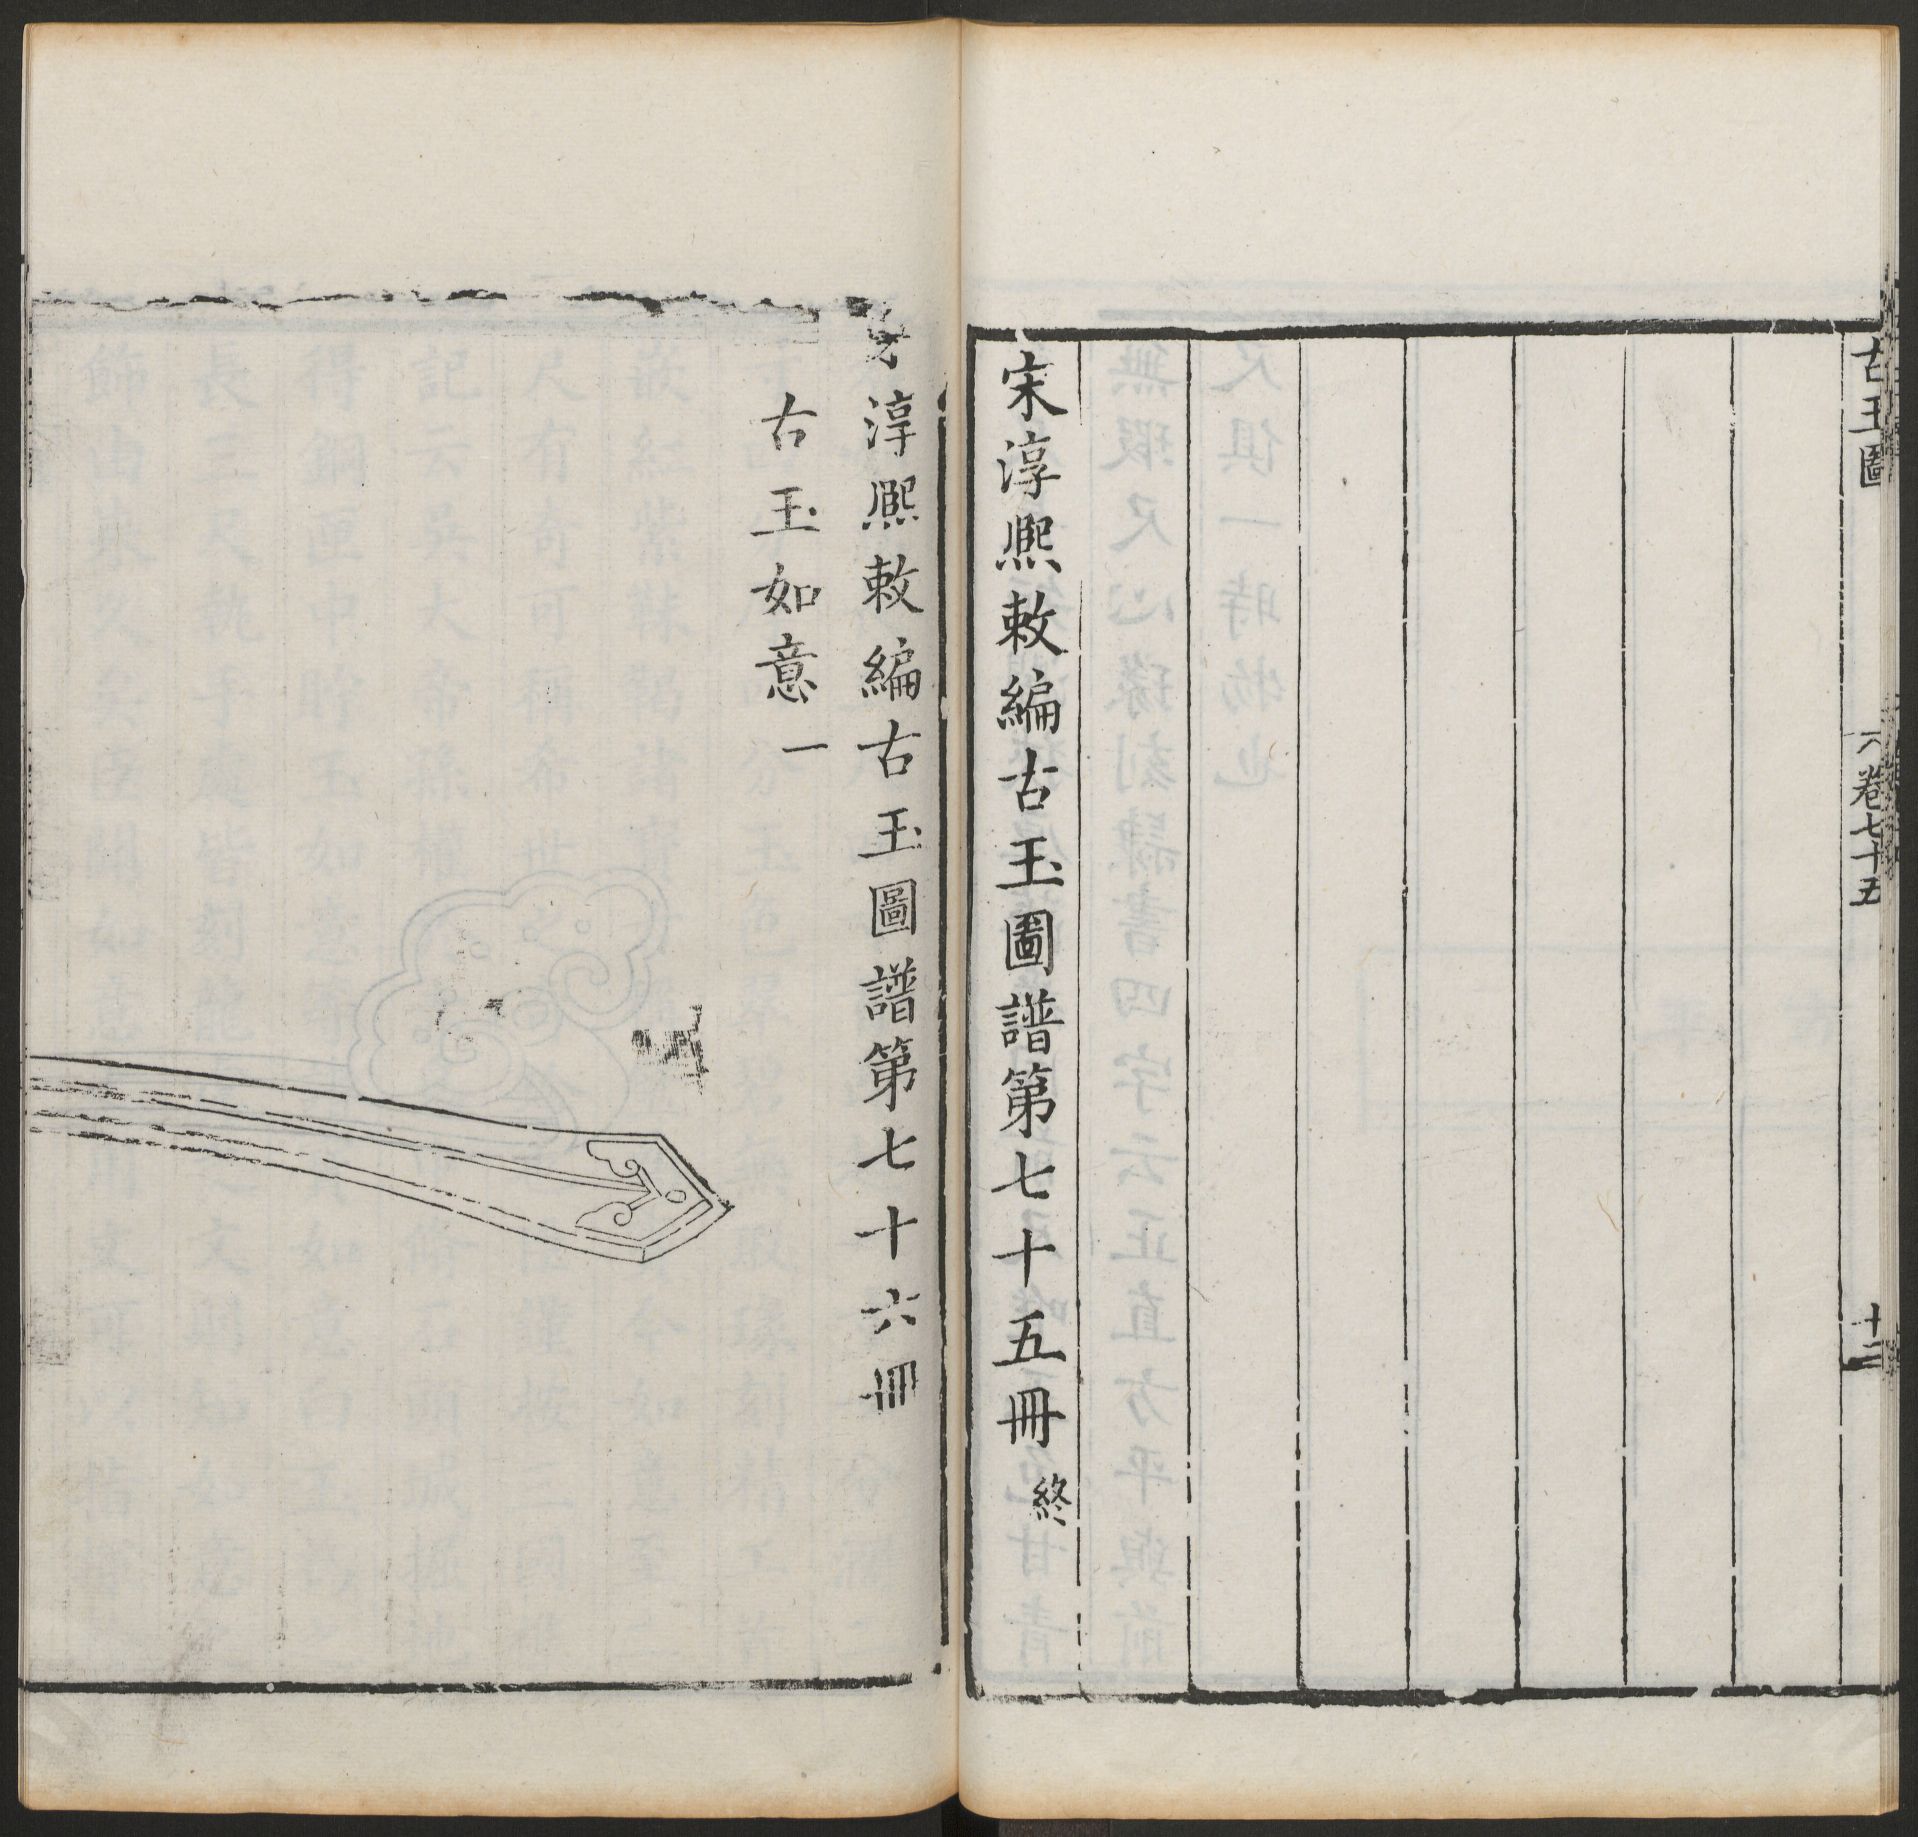 古玉圖 卷七十五 十二
宋淳熙敕編古玉圖譜第七十五冊 終
淳熙敕編古玉圖譜第七十六冊
古玉如意一